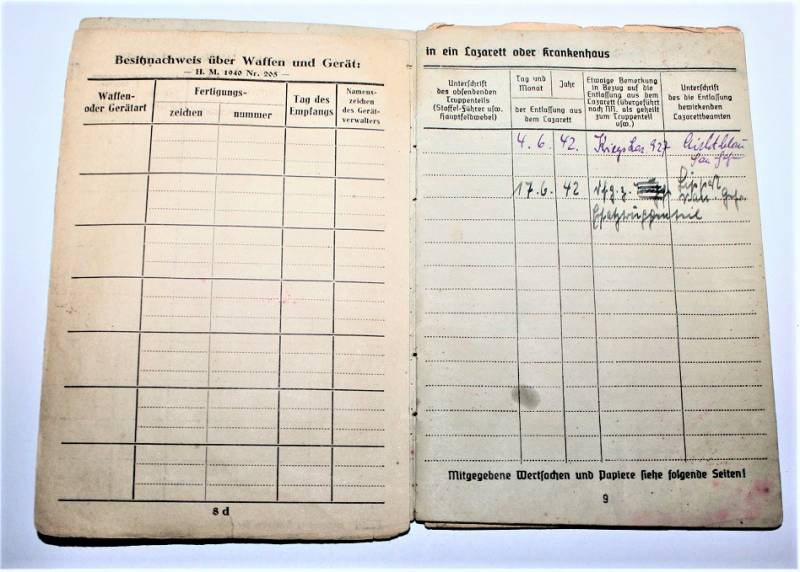 Besitznachweis über Waffen und Gerät:
— H. M. 1940 Nr. 205 —
Waffen-
oder Gerätart
Fertigungs-
zeichen
nummer
Tag des
Empfangs
Namens-
zeichen
des Gerät-
verwalters
8 d
in ein Lazarett oder Krankenhaus
Unterschrift
des absendenden
Truppenteils
(Staffel-Führer usw.
Hauptfeldwebel)
Tag und
Monat
Jahr
der Entlassung aus
dem Lazarett
Etwaige Bemerkung
in Bezug auf die
Entlassung aus dem
Lazarett (übergeführt
nach NN. als geheilt
zum Truppenteil
usw.)
Unterschrift
des die Entlassung
bewirkenden
Lazarettbeamten
4. 6. 42. Kriegslaz. 927
17. 6. 42
Ersatztruppenteil
Mitgegebene Wertsachen und Papiere siehe folgende Seiten!
9